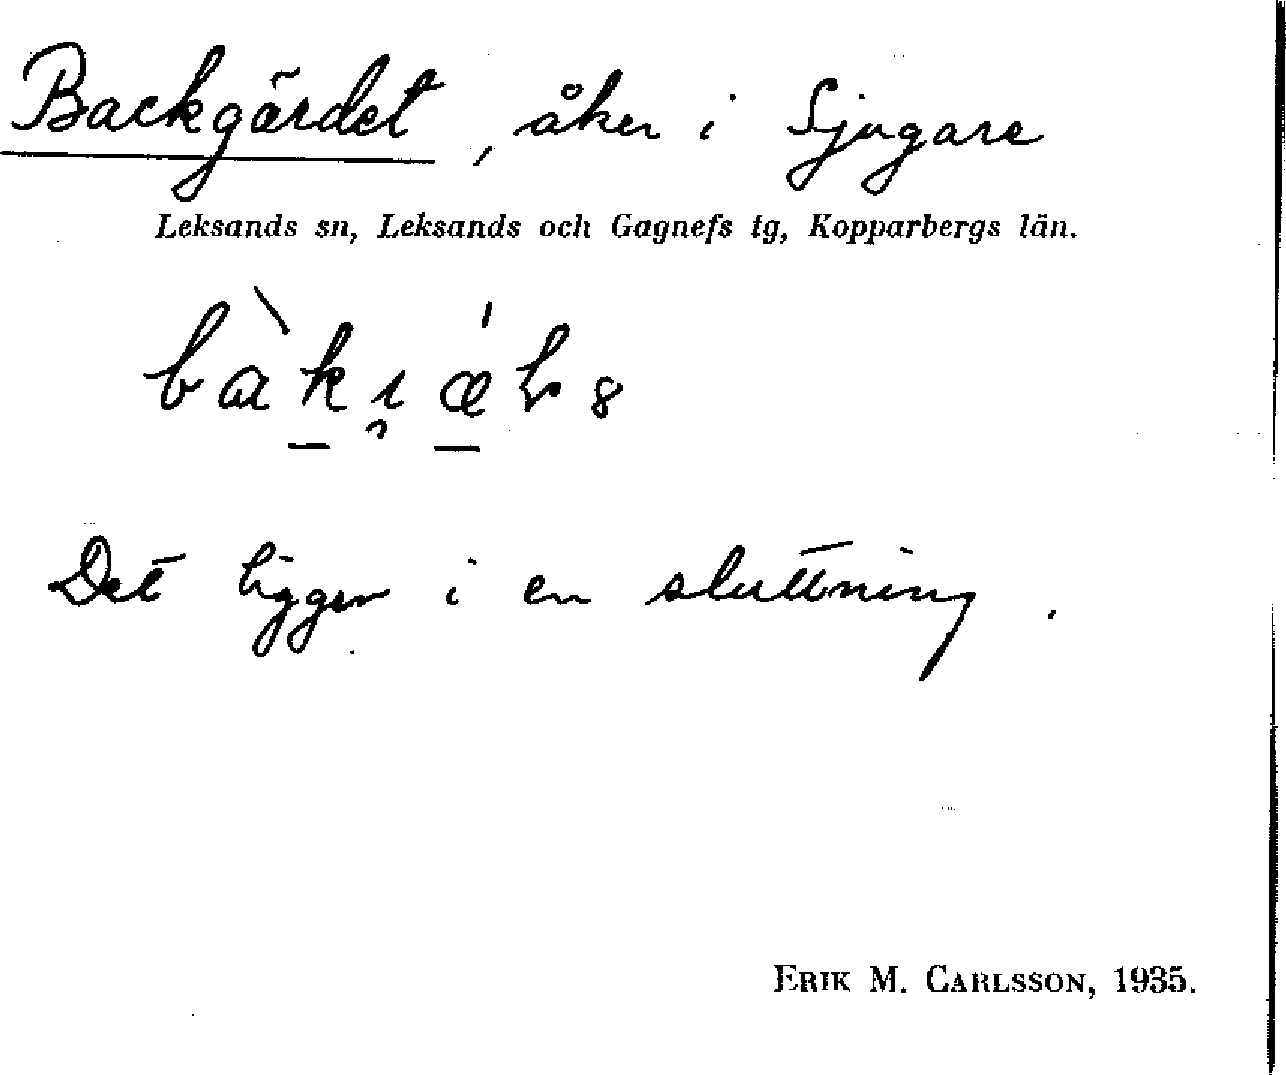 Backgärdet, åker i Sjugare
Leksands sn, Leksands och Gagnefs tg, Kopparbergs län.
Det ligger i en sluttning.
ERIK M. CARLSSON, 1935.